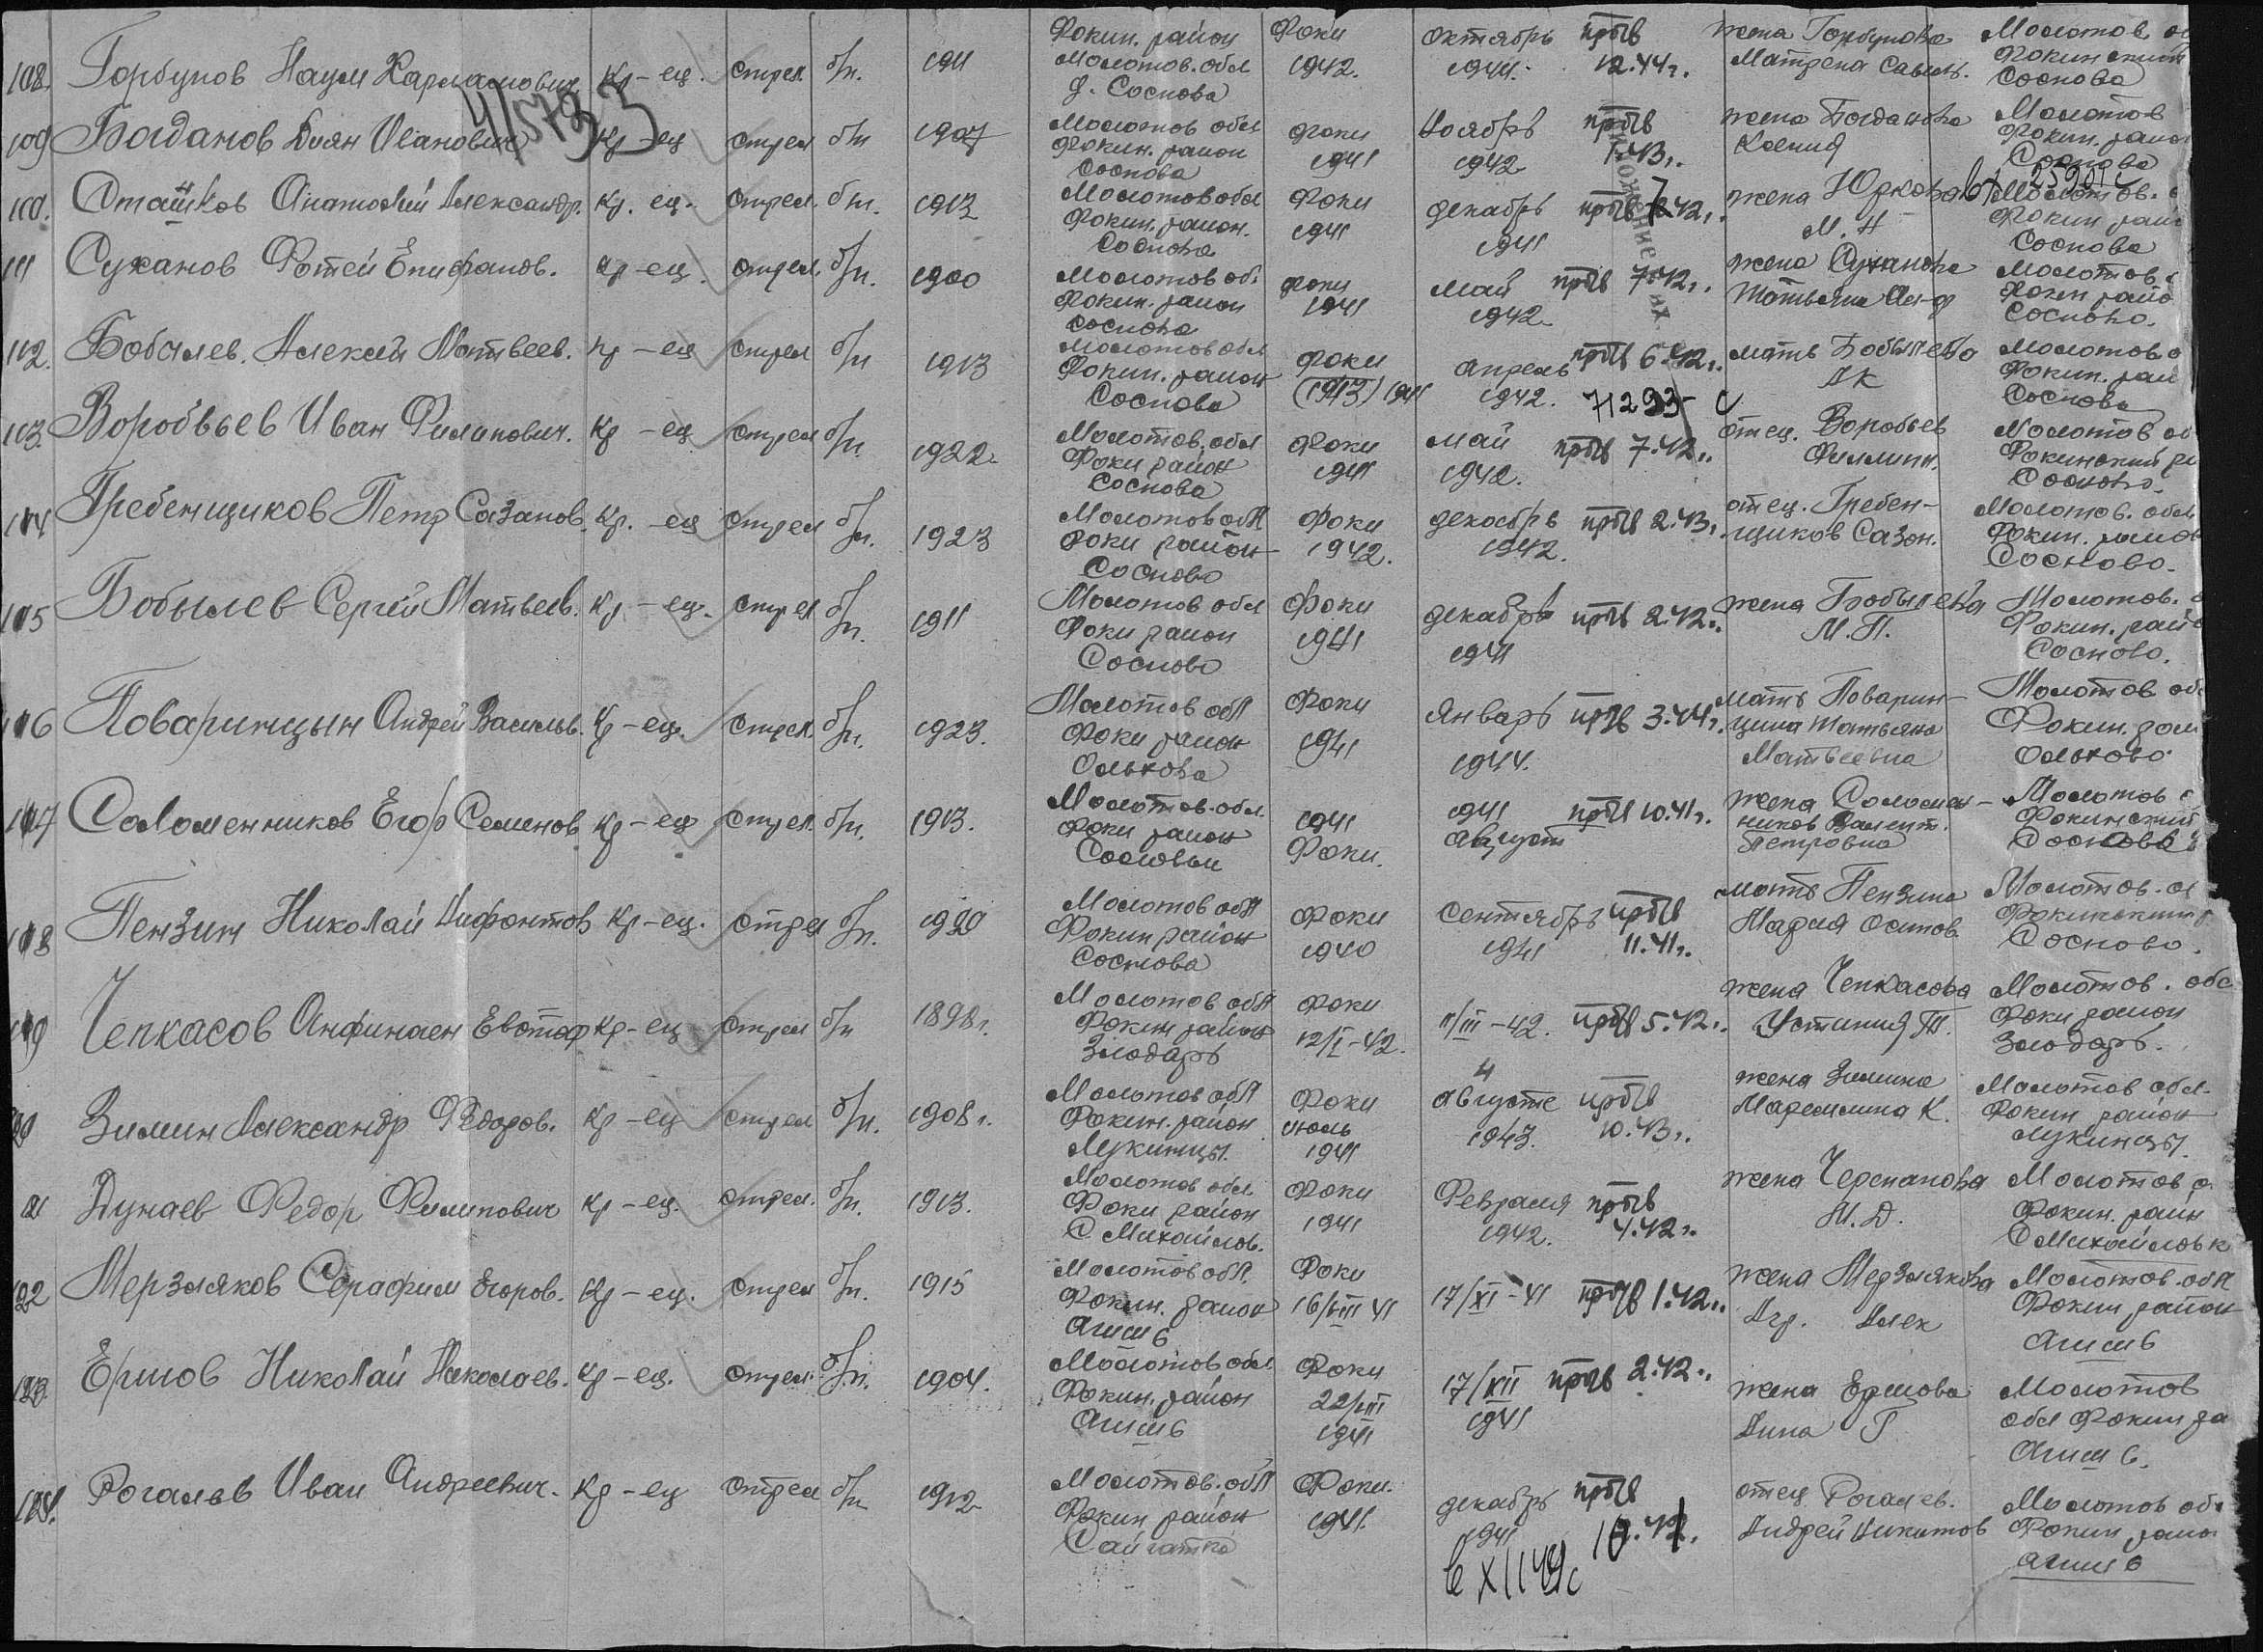 108. Горбунов Наум Хармамович Кр-ец. стрел. б/п. 1911 Фокин. район Молотов. обл д. Соснова Фоки 1942. октябрь 1944. прбв 12.44г. жена Горбунова Матрена Савель. Молотов. о Фокинский Соснова
4/5793
109 Богданов Диян Иванович Кр-ец стрел б/п 1907 Молотов обл Фокин. район Соснова Фоки 1941 Ноябрь 1942 прбв 1.43г. жена Богданова Ксения Молотов Фокин. район Соснова
110. Сташков Анатолий Александр. Кр. ец. стрел. б/п. 1913 Молотов обл Фокин. район. Соснова Фоки 1941 декабрь 1941 прбв 7.42г. жена Юркова М. Н Молотов. Фокин. рай Соснова
111 Суханов Фотей Епифанов. Кр-ец. стрел. б/п. 1900 Молотов об. Фокин. район Соснова Фоки 1941 май 1942 прбв 7.42г. жена Суханова Татьяна Молотов. Фокин райо Сосново.
112. Бобылев. Алексей Матвеев. Кр-ец стрел б/п 1913 Молотов обл Фокин. район Соснова Фоки (1913) 1941 апрель 1942. прбв 6.42г. мать Бобылева АК Молотов. о Фокин. рай Соснова
71293 с
113. Воробьев Иван Филипович. Кр-ец стрел б/п 1922 Молотов. обл Фоки район Соснова Фоки 1941 май 1942. прбв 7.42г. отец. Воробьев Филипп. Молотов об Фокинский ра Сосново.
114 Гребенщиков Петр Сазанов. Кр.-ец стрел б/п. 1923 Молотов обл Фоки район Сосново Фоки 1942. декабрь 1942. прбв 2.43г. отец. Гребенщиков Сазон. Молотов. обл Фокин. район Сосново.
115 Бобылев Сергей Матвеев. Кр-ец. стрел б/п. 1911 Молотов обл Фоки район Сосново Фоки 1941 декабрь 1941 прбв 2.42г. жена Бобылева М. П. Молотов. о Фокин. рай Сосново.
116 Поваринцын Андрей Васильв. Кр-ец. стрел. б/п. 1923. Молотов обл Фоки район Ольхова Фоки 1941 Январь 1944. прбв 3.44г. мать Поваринцина Татьяна Матвеевна Молотов об Фокин. рай Ольхово
117 Соломенников Егор Семенов Кр-ец стрел. б/п. 1913. Молотов. обл. Фоки район Сосновы 1941 Фоки. 1941 август прбв 10.41г. жена Соломенников Валент. Петровна Молотов Фокинский Соснова
118 Пензин Николай Нифонтов Кр-ец. стрел б/п. 1920 Молотов обл Фокин район Соснова Фоки 1940 сентябрь 1941 прбв 11.41г. мать Пензина Мария Осипов. Молотов. о Фокинский Сосново.
119 Чепкасов Анфиноген Евстар Кр-ец стрел б/п 1898г. Молотов обл Фокин район Злодарь Фоки 12/I-42. 11/III-42. прбв 5.42г. жена Чепкасова Устиния Т. Молотов. обл Фоки район Злодарь.
120 Зимин Александр Федоров. Кр-ец стрел б/п. 1908г. Молотов обл Фокин. район Лукинцы. Фоки июль 1941 4 августе 1943. прбв 10.43г. жена Зимина Маремьяна К. Молотов обл. Фокин район Лукинцы.
121 Дунаев Федор Филипович Кр-ец. стрел. б/п. 1913. Молотов обл. Фоки район С. Михайлов. Фоки 1941 Февраля 1942. прбв 4.42г. жена Черепанова Н. Д. Молотов о Фокин. райн С Михайловк
122 Мерзляков Серафим Егоров. Кр-ец. стрел б/п. 1915 Молотов обл. Фокин. район Атишь Фоки 16/VIII 41 17/XI-41 прбв 1.42г. жена Мерзлякова Агр. Алек Молотов. обл Фокин район Атишь
123. Ершов Николай Николаев. Кр-ец. стрел. б/п. 1904. Молотов обл Фокин. район Атишь Фоки 22/VIII 1941 17/XII 1941 прбв 2.42г. жена Ершова Анна Г Молотов обл Фокин ра Атишь.
124. Рогалев Иван Андреевич. Кр-ец стрел б/п 1912 Молотов. обл Фокин район Сайгатка Фоки. 1941. декабрь 1941 прбв отец Рогалев. Андрей Никитов Молотов об Фокин райо Атишь